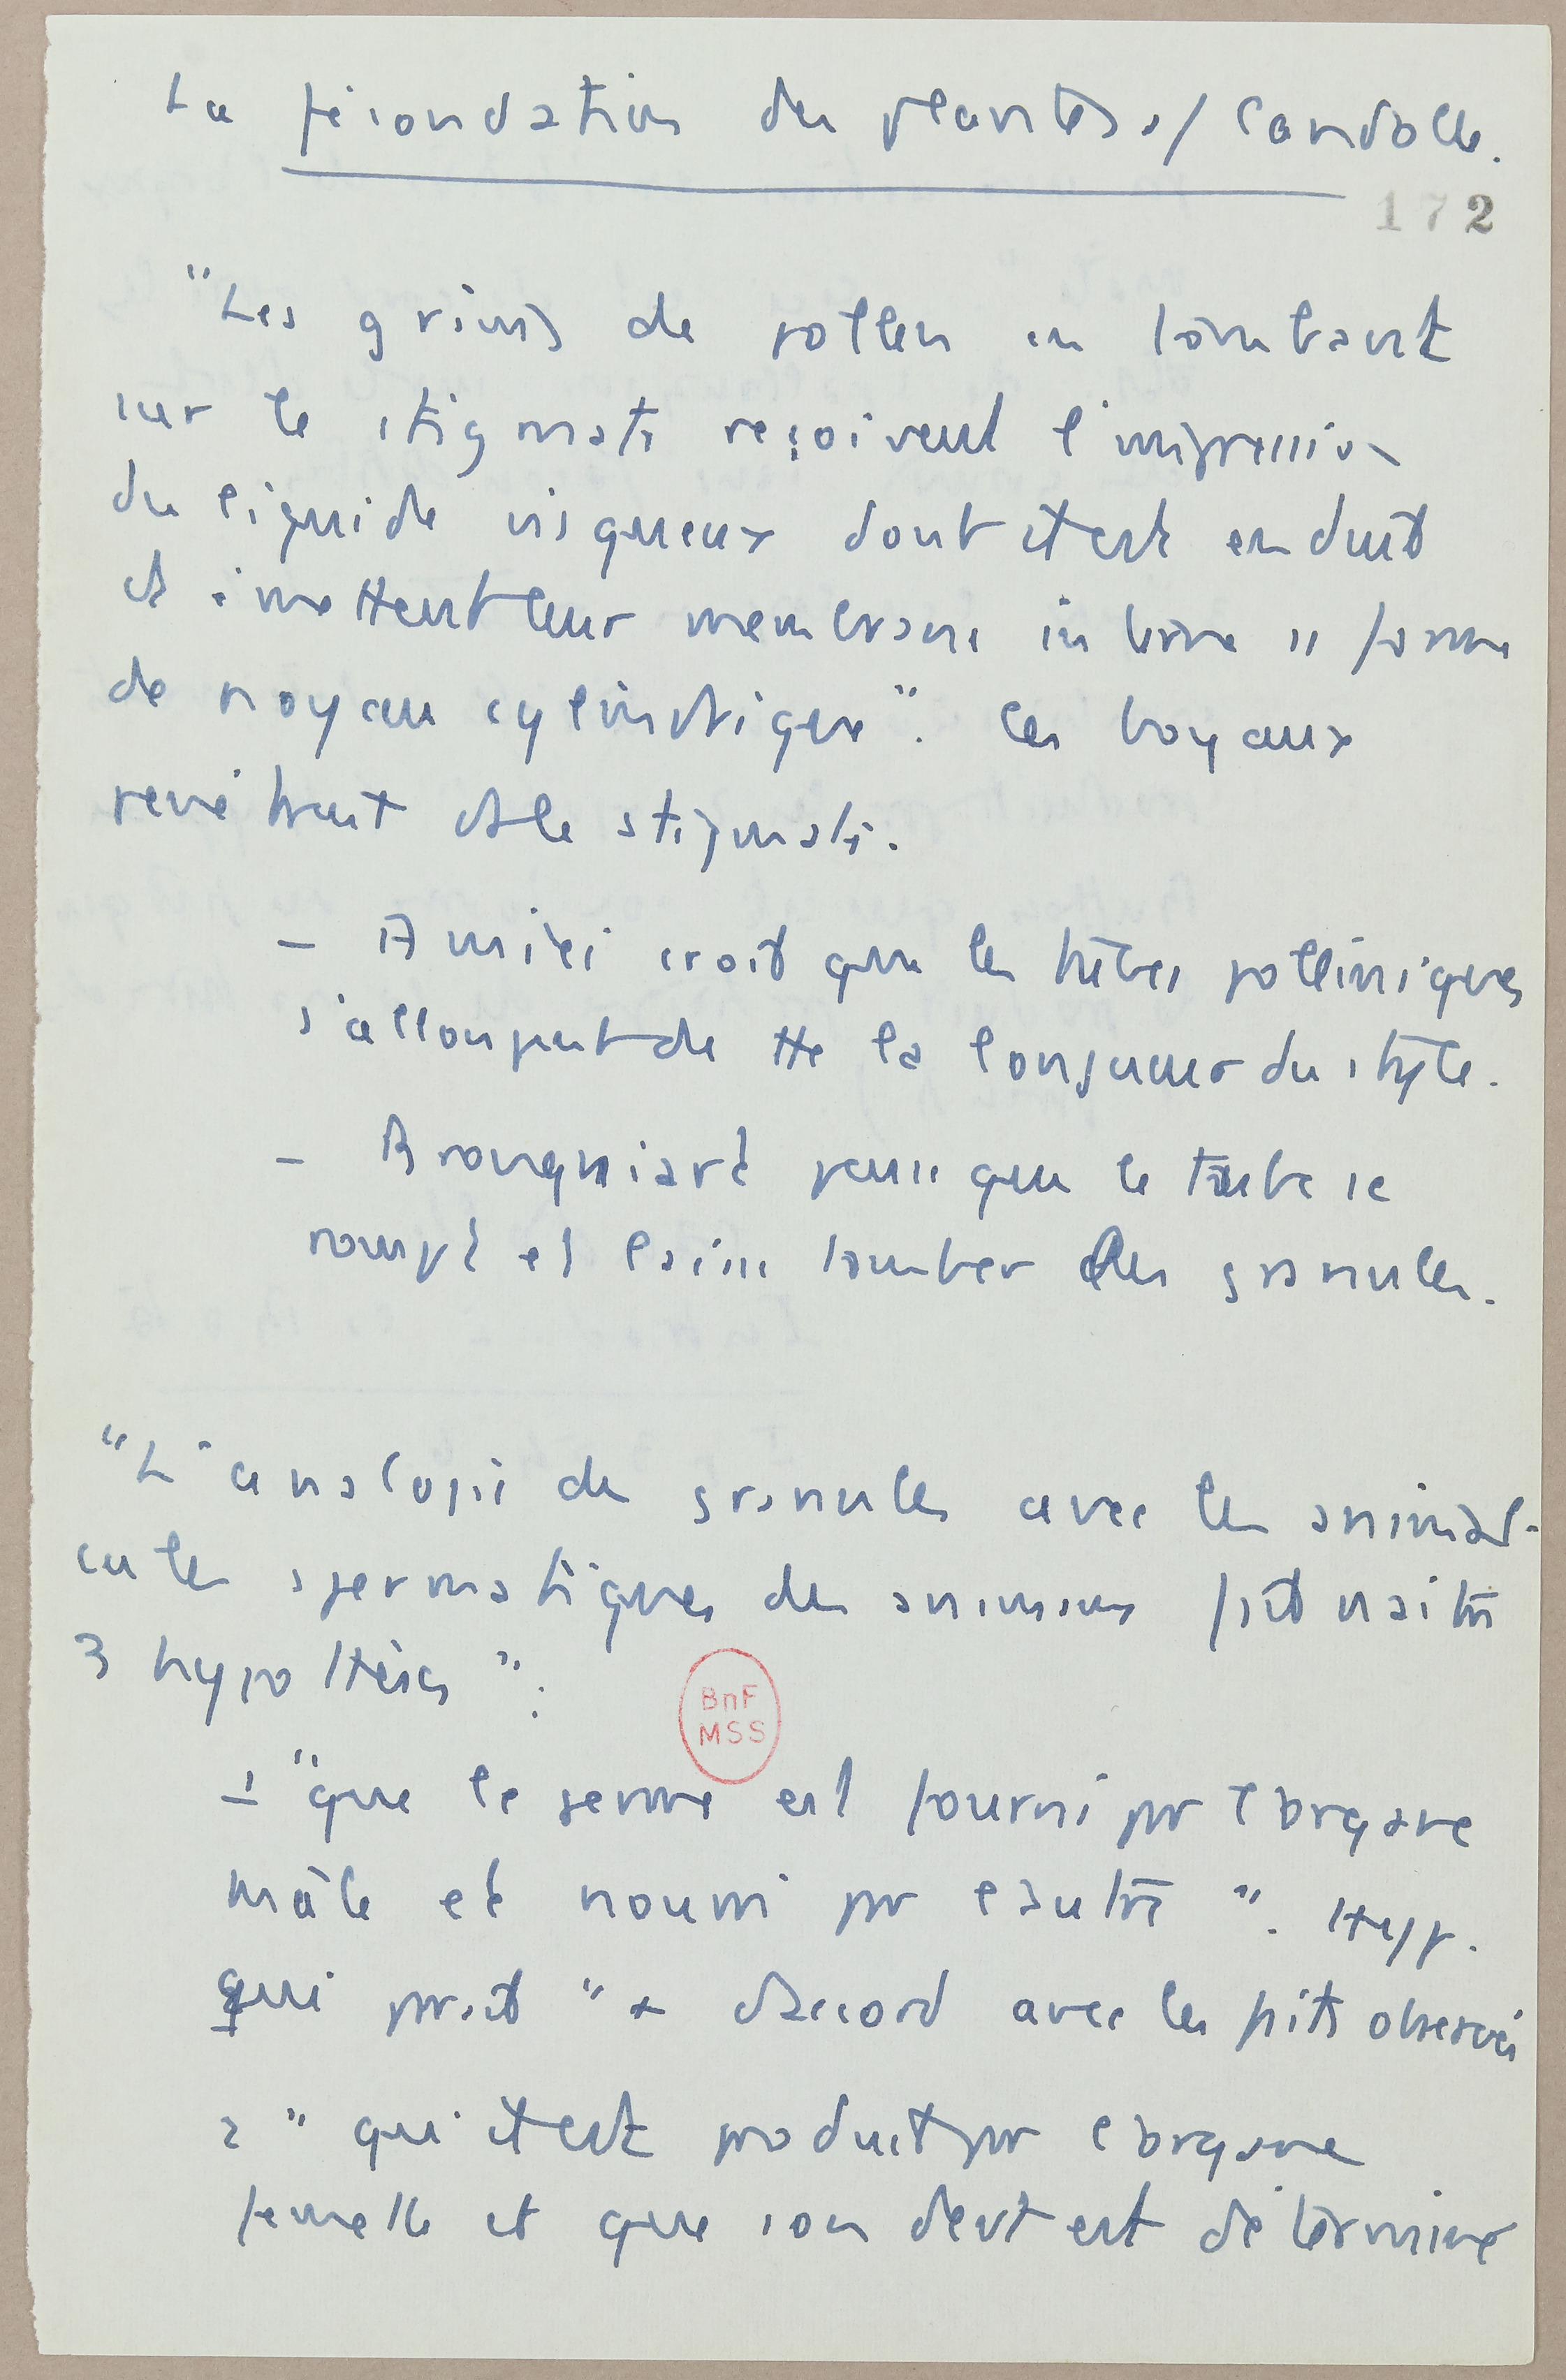 La fécondation des plantes s/ Candolle.
172
"Les grains de pollen en tombant
sur le stigmate reçoivent l'impression
du liquide visqueux dont il est enduit
et émettent leur membrane interne ss forme
de noyau cylindrique". Ces boyaux
pénètrent ds le stigmate.
– Amici croit que les tubes polliniques
s'allongent de tte la longueur du style.
– Brongniart pense que le tube se
rompt et laisse tomber des granules.
"L'analogie des granules avec les animal-
cules spermatiques des animaux fait naître
3 hypothèses" :
1 "que le germe est fourni pr l'organe
mâle et nourri pr l'autre". Hyp.
qui paraît "+ d'accord avec les faits observés
2 "qu'il est produit pr l'organe
femelle et que son devt est déterminé
BnF
MSS